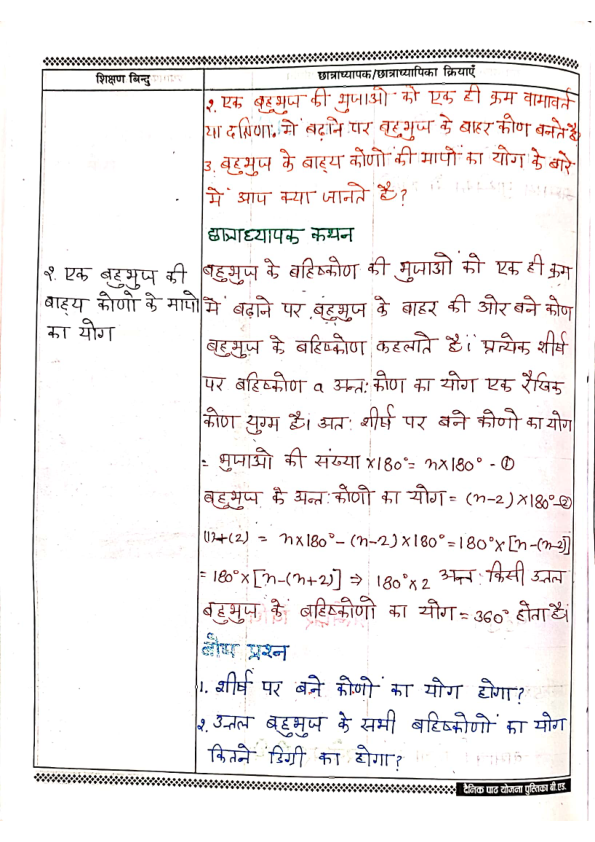 शिक्षण बिन्दु
छात्राध्यापक/छात्राध्यापिका क्रियाएँ
२. एक बहुभुज की भुजाओं को एक ही क्रम वामावर्त
या दक्षिणा. में बढ़ाने पर बहुभुज के बाहर कोण बनते है
3. बहुभुज के बाह्य कोणों की मापों का योग के बारे
में आप क्या जानते है?
छात्राध्यापक कथन
२. एक बहुभुज की
बाह्य कोणो के मापो
का योग
बहुभुज के बहिष्कोण की भुजाओं को एक ही क्रम
में बढ़ाने पर बहुभुज के बाहर की ओर बने कोण
बहुभुज के बहिष्कोण कहलाते है। प्रत्येक शीर्ष
पर बहिष्कोण a अन्त: कोण का योग एक रैखिक
कोण युग्म है। अत: शीर्ष पर बने कोणो का योग
= भुजाओ की संख्या x180°= n x180° - ①
बहुभुज के अन्त: कोणो का योग = (n-2) x180°-②
(1)+(2) = n x180°-(n-2) x180°=180°x[n-(n-2)]
= 180°x[n-(n+2)] ⇒ 180°x2 अन्त: किसी उत्तल
बहुभुज के बहिष्कोणो का योग = 360° होता है।
बोध प्रश्न
1. शीर्ष पर बने कोणों का योग होगा?
२. उत्तल बहुभुज के सभी बहिष्कोणों का योग
कितने डिग्री का होगा?
दैनिक पाठ योजना पुस्तिका बी.एड.